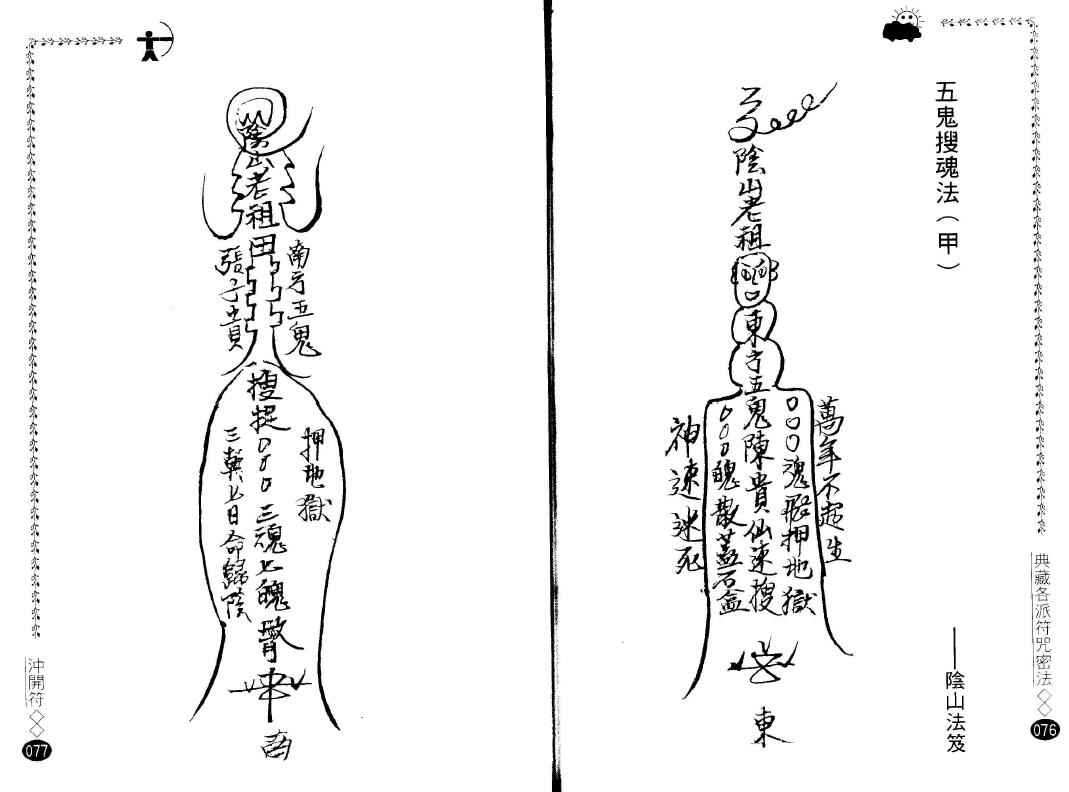 五鬼搜魂法（甲）
——陰山法笈
陰山老祖
東方五鬼陳貴仙速搜
○○○魂飛押地獄
○○○魄散蓋石盆
萬年不超生
神速速死
東
典藏各派符咒密法
076
陰山老祖
南方五鬼
張子貴
搜捉○○○三魂七魄散
押地獄
三魂七日命歸陰
南
沖開符
077